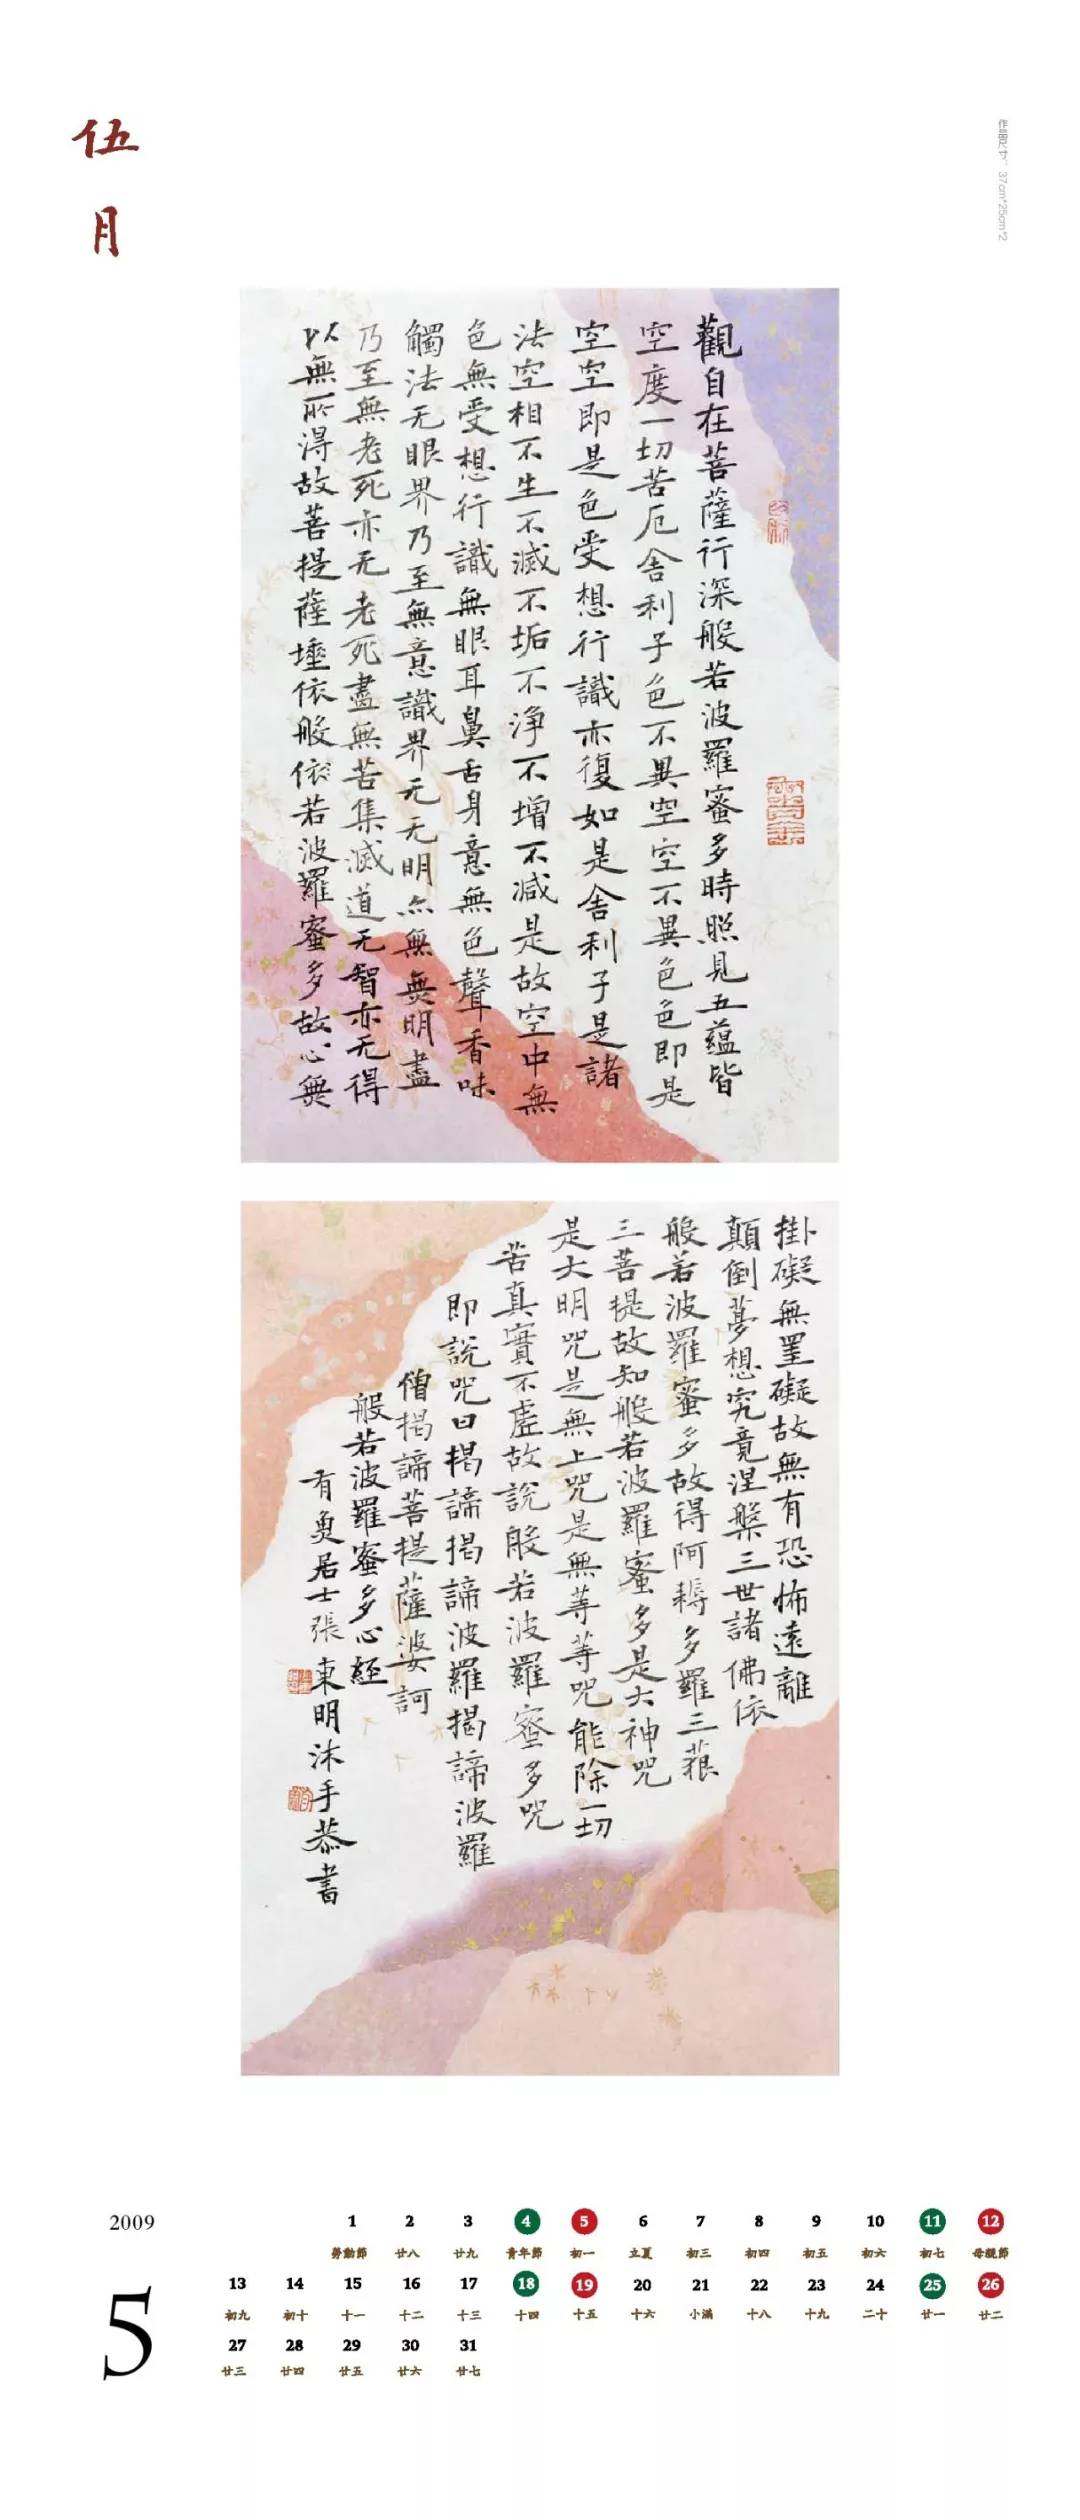 伍月
作品尺寸：37cm*25cm*2
觀自在菩薩行深般若波羅蜜多時照見五蘊皆
空度一切苦厄舍利子色不異空空不異色色即是
空空即是色受想行識亦復如是舍利子是諸
法空相不生不滅不垢不淨不增不減是故空中無
色無受想行識無眼耳鼻舌身意無色聲香味
觸法无眼界乃至無意識界无无明亦無無明盡
乃至無老死亦无老死盡無苦集滅道无智亦无得
以無所得故菩提薩埵依般依若波羅蜜多故心無
掛礙無罣礙故無有恐怖遠離
顛倒夢想究竟涅槃三世諸佛依
般若波羅蜜多故得阿耨多羅三藐
三菩提故知般若波羅蜜多是大神咒
是大明咒是無上咒是無等等咒能除一切
苦真實不虛故說般若波羅蜜多咒
即說咒曰揭諦揭諦波羅揭諦波羅
僧揭諦菩提薩婆訶
般若波羅蜜多心経
有魚居士張東明沐手恭書
2009
5
1 2 3 4 5 6 7 8 9 10 11 12
勞動節 廿八 廿九 青年節 初一 立夏 初三 初四 初五 初六 初七 母親節
13 14 15 16 17 18 19 20 21 22 23 24 25 26
初九 初十 十一 十二 十三 十四 十五 十六 小滿 十八 十九 二十 廿一 廿二
27 28 29 30 31
廿三 廿四 廿五 廿六 廿七